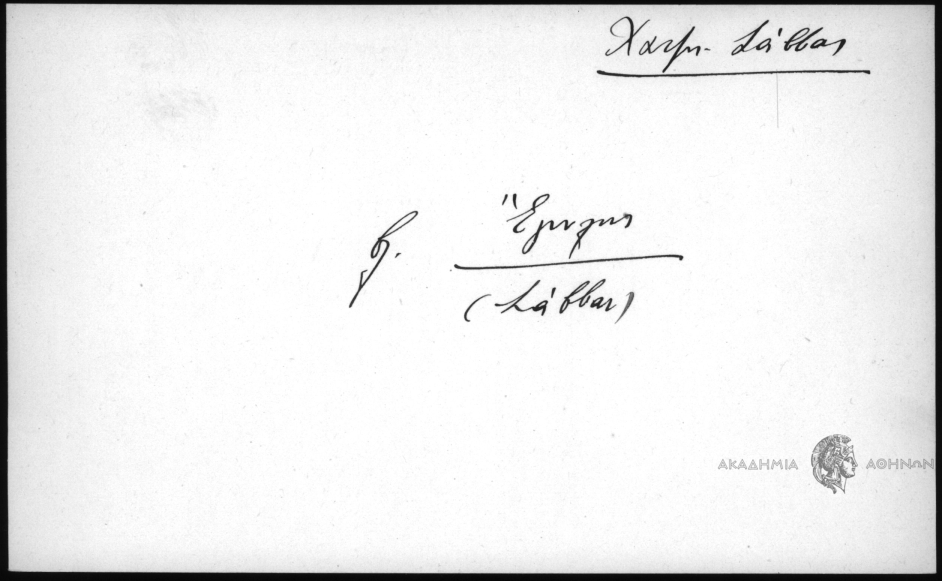 Χατζη- Σάββας
β. Ἔμπορος
(Σάββας)
ΑΚΑΔΗΜΙΑ ΑΘΗΝΩΝ